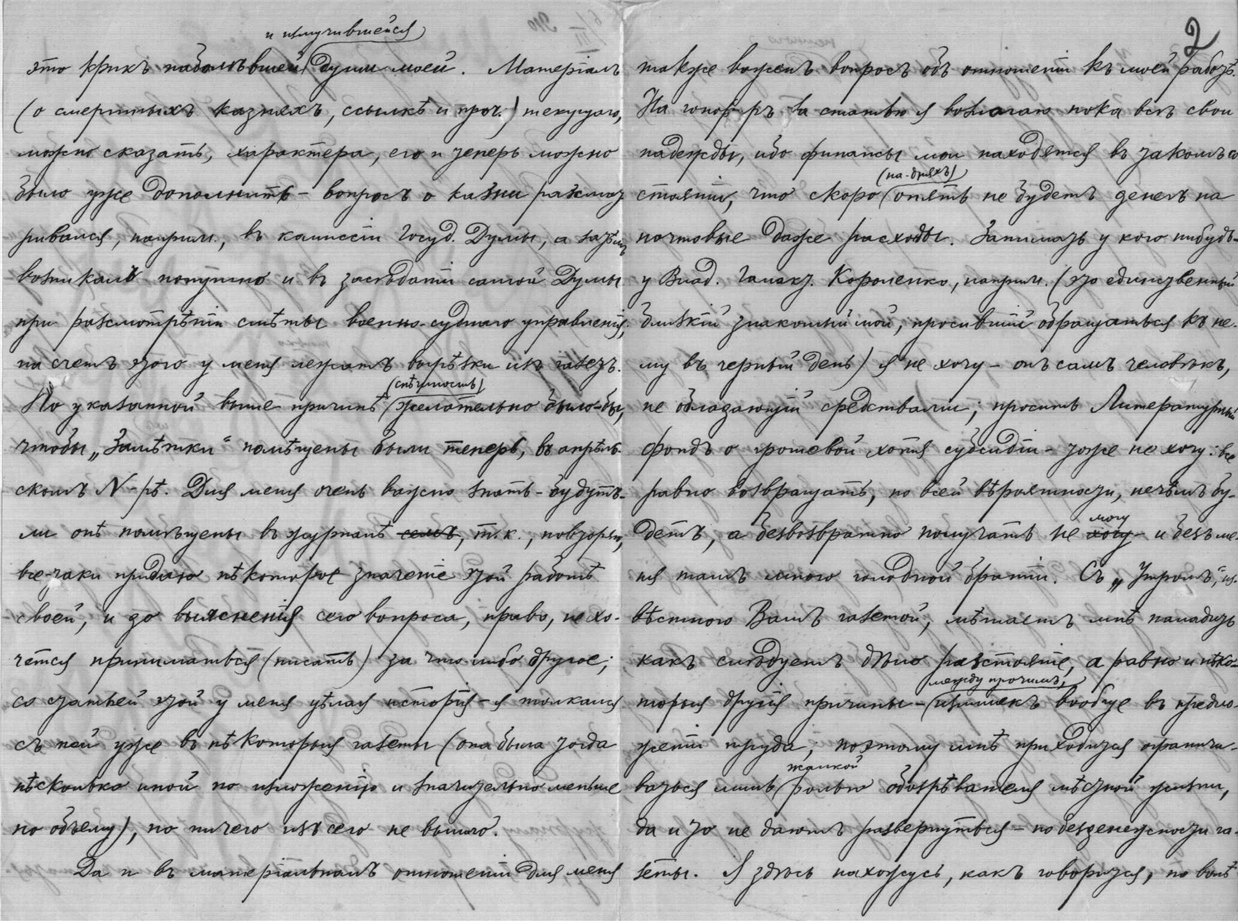 2
и измучившейся
это крикъ наболѣвшей души моей. Матеріалъ
(о смертныхъ казняхъ, ссылкѣ и проч.) текущаго,
можно сказать, характера, его и теперь можно
было уже дополнить – вопросъ о казни разсмат
ривался, наприм., въ комиссіи Госуд. Думы, а затѣмъ
возникалъ попутно и въ засѣданіи самой Думы
при разсмотрѣніи смѣты военно-суднаго управленія,
на счетъ этого у меня лежатъ вырѣзки изъ газетъ.
(спѣшность)
По указанной выше причинѣ желательно было-бы,
чтобы „Замѣтки" помѣщены были теперь, въ апрѣль-
скомъ N-рѣ. Для меня очень важно знать – будутъ-
ли онѣ помѣщены въ журналѣ, т.к., повторяю,
все-таки придаю нѣкоторое значеніе этой работѣ
своей, и до выясненія сего вопроса, право, не хо-
чется приниматься (писать) за что либо другое;
со статьей этой у меня цѣлая исторія – я толкался
съ ней уже въ нѣкоторыя газеты (она была тогда
нѣсколько иной по изложенію и значительно меньше
по объему), но ничего изъ сего не вышло.
Да и въ матеріальномъ отношеніи для меня
также важенъ вопросъ объ отношеніи къ моей работѣ.
На гонораръ за статью я возлагаю пока всѣ свои
надежды, ибо финансы мои находятся въ такомъ со
(на-дняхъ)
стояніи, что скоро опять не будетъ денегъ на
почтовые даже расходы. Занимать у кого нибудь –
у Влад. Галакт. Короленко, наприм. (это единственный
близкій знакомый мой, просившій обращаться къ не-
му въ черный день) я не хочу – онъ самъ человѣкъ,
не обладающій средствами; просить Литературный
фондъ о грошевой хотя субсидіи – тоже не хочу: все
равно возвращать, по всей вѣроятности, нечѣмъ бу-
могу
детъ, а безвозвратно получать не хочу – и безъ ме-
ня тамъ много голодной братіи. Съ „Утромъ", из-
вѣстного Вамъ газетой, мѣшаетъ мнѣ наладить
какъ слѣдуетъ дѣло разстояніе, а равно и нѣко-
между прочимъ,
торыя другія причины – излишекъ вообще въ предло-
женіи труда, поэтому мнѣ приходится ограничи-
жалкой
ваться лишь ролью обозрѣвателя мѣстной жизни,
да и то не даютъ развернуться – по безденежности га-
зеты. Я здѣсь нахожусь, какъ говорится, по волѣ